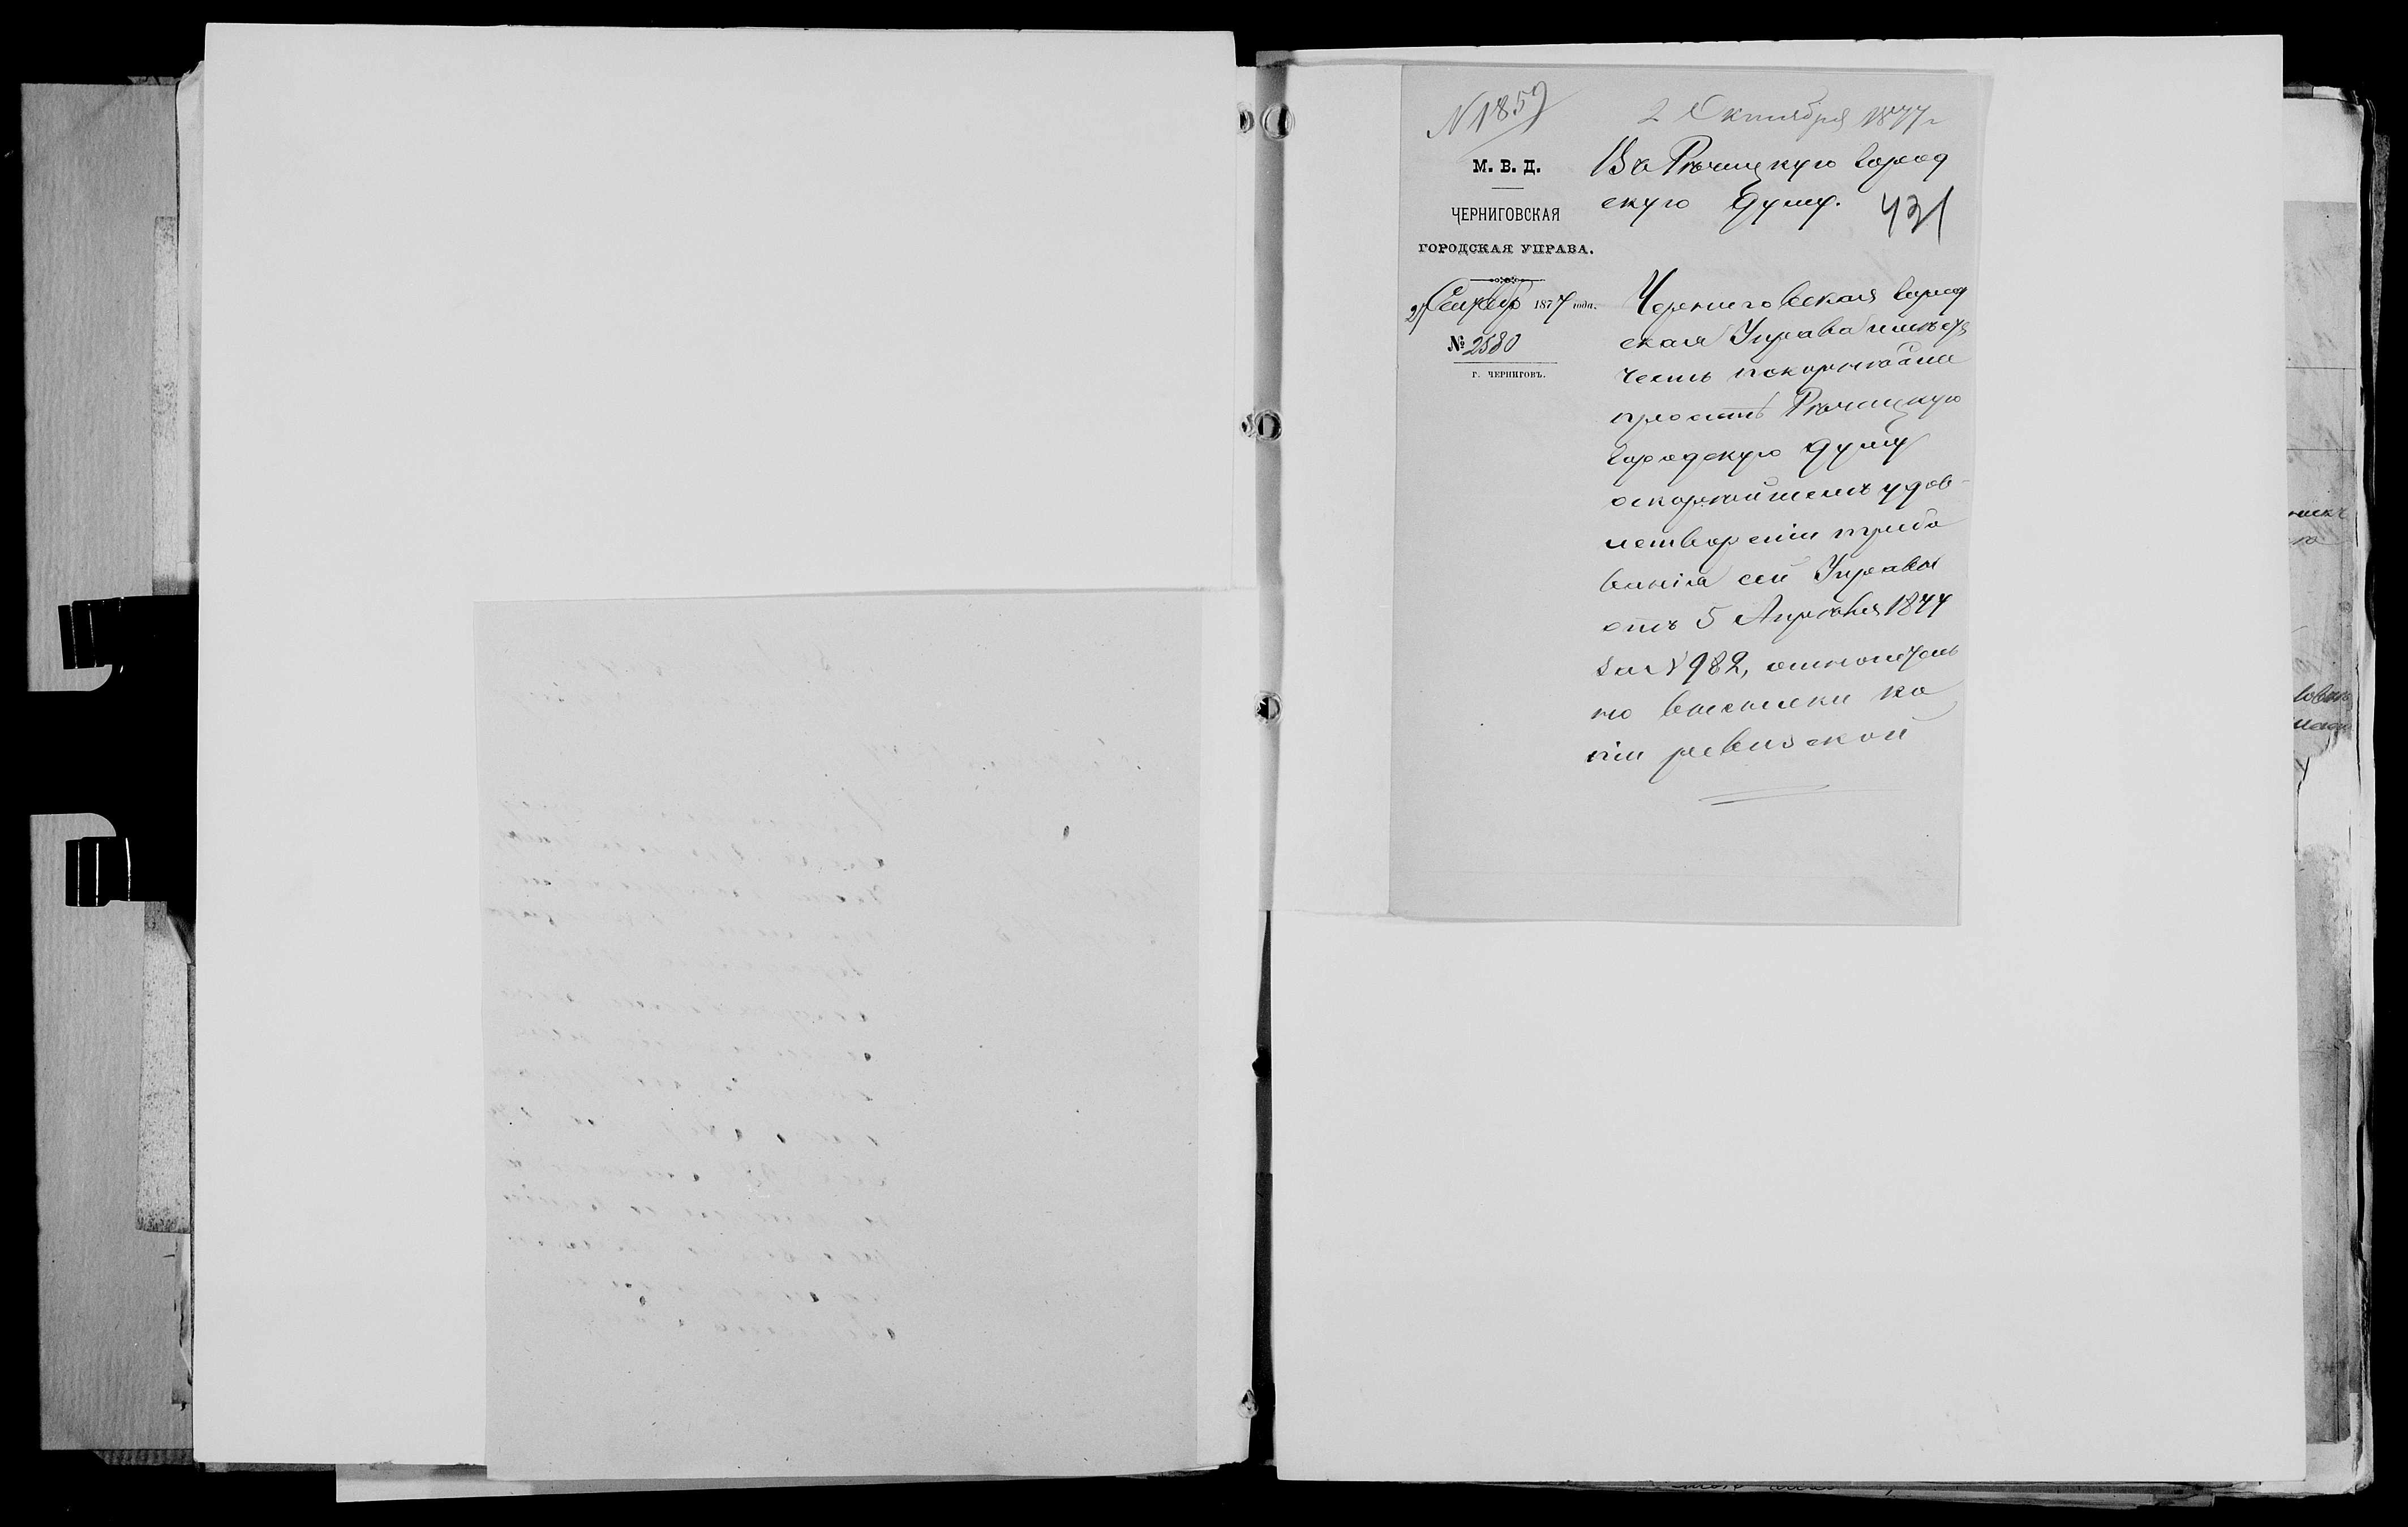 N 1859
2 Октября 1877 г
М. В. Д.
ЧЕРНИГОВСКАЯ
ГОРОДСКАЯ УПРАВА.
27 Сентября 1877 года.
№ 2580
Г. ЧЕРНИГОВЪ.
Въ Рѣчицкую Город
скую Думу.
431
Черниговская Город
ская Управа имѣетъ
честь покорнѣйше
просить Рѣчицкую
Городскую Думу
о скорѣйшемъ удов-
летвореніи требо
ванія сей Управы
отъ 5 Апрѣля 1877
за N 982, относитель
но высылки ко
піи ревизской